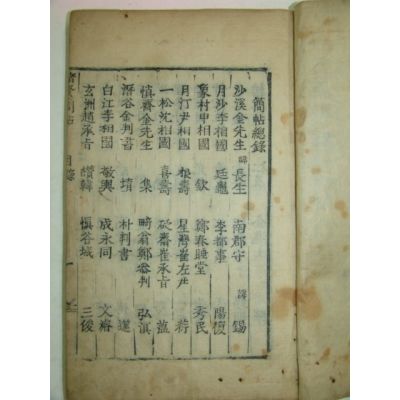 簡帖總錄
沙溪金先生 諱長生 南郡守 諱 錫
月沙李相國 廷龜 李都事 陽復
象村申相國 欽 鄭春睡堂 秀民
月汀尹相國 根壽 星灣崔左尹 葕
一松沈相國 喜壽 砭齋崔承旨 蘊
愼齋金先生 集 畸翁鄭參判 弘溟
潛谷金判書 堉 朴判書 遾
白江李相國 敬輿 成永同 文濬
玄洲趙承旨 纘韓 愼谷城 三俊
目錄 一